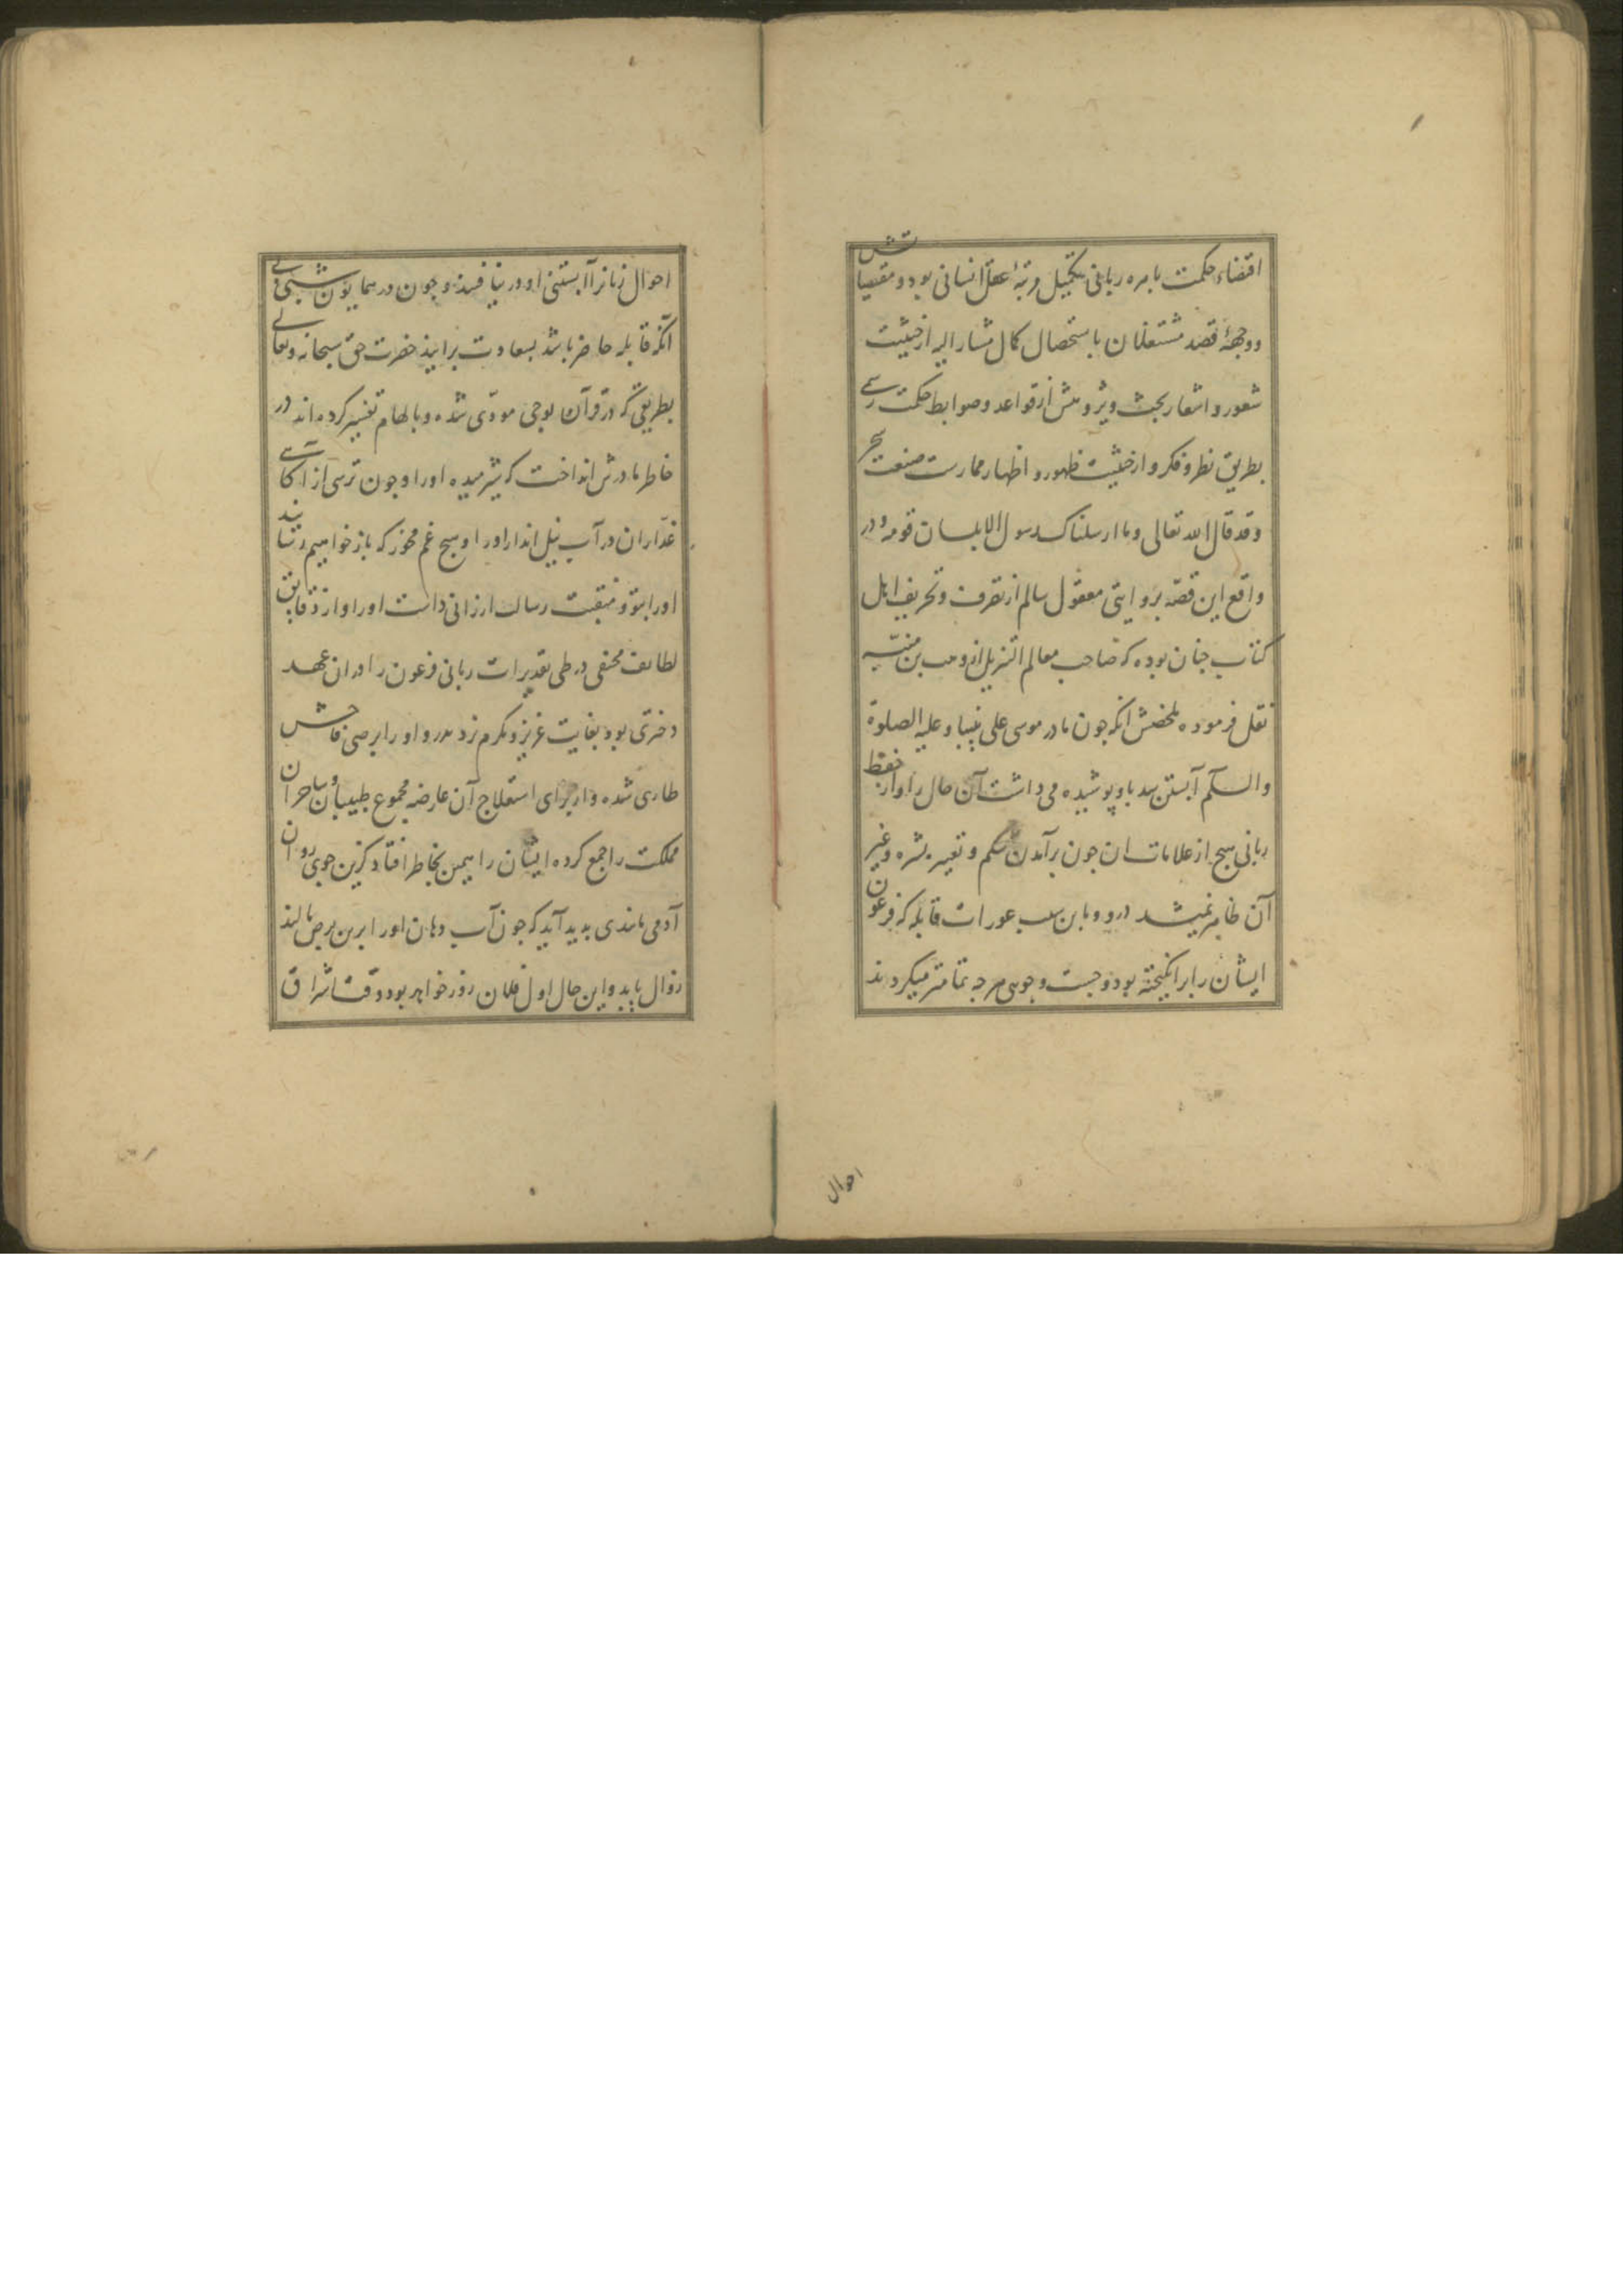 اقتضاء حکمت بامره ربانی بتکمیل رتبهٔ عقل انسانی بود و مقتضیاتش
و وجههٔ قصد مشتغلان باستحصال کمال مشار الیه از حیثیت
شعور و اشعار بحث و پژوهش از قواعد و ضوابط حکمت رسمی
بطریق نظر و فکر و از حیثیت ظهور و اظهار ممارست صنعت سحر
و قد قال الله تعالی و ما ارسلناک رسول الا بلسان قومه و در
واقع این قصّه بروایتی معقول سالم از تصرف و تحریف اهل
کتاب چنان بوده که صاحب معالم التنزیل از وهب بن منبّه
نقل فرموده ملخصش انکه چون مادر موسی علی نبینا و علیه الصلوة
والسلام آبستن شد باو پوشیده می داشت آن حال را و از حفظ
ربانی هیچ از علامات ان چون برآمدن شکم و تغییر بشره و غیر
آن ظاهر نمیشد درو و باین سبب عورات قابله که فرعون
ایشان را برانگیخته بود و جست و جوی هرچه تمامتر میکردند
احوال
احوال زنانرا آبستنی او در نیافتند و چون در همایون شبی بی
آنکه قابله حاضر باشد بسعادت برایند حضرت حق سبحانه و تعالی
بطریقی که در قرآن بوحی مودّی شده و بالهام تفسیر کرده اند در
خاطر مادرش انداخت که شیر میده او را و چون ترسی از آکاهی
غدّاران در آب نیل انداز او را و هیچ غم مخور که باز خواهیم رسانید
او را بتو و منقبت رسالت ارزانی داشت او را و از دقایق
لطایف مخفی در طی تقدیرات ربانی فرعون را در ان عهد
دختری بود بغایت عزیز و مکرم نزد پدر و او را برصی فاحش
طاری شده و از برای استعلاج آن عارضه مجموع طبیبان و ساحران
مملکت را جمع کرده ایشان را همین بخاطر افتاد کزین جوی روان
آدمی مانندی بدید آید که چون آب دهان او را برین برص مالند
زوال یابد و این حال اول فلان روز خواهد بود وقت اشراق